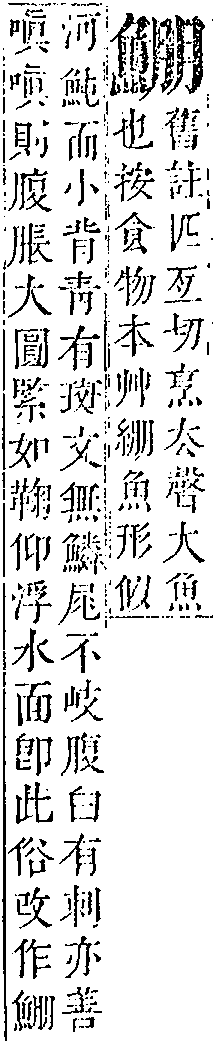 ⿰魚朋
舊註匹亙切烹去聲大魚
也按食物本艸綳魚形似
河魨而小背靑有斑文無鱗尾不岐腹白有刺亦善
嗔嗔則腹脹大圓緊如鞠仰浮水面卽此俗改作⿰魚朋